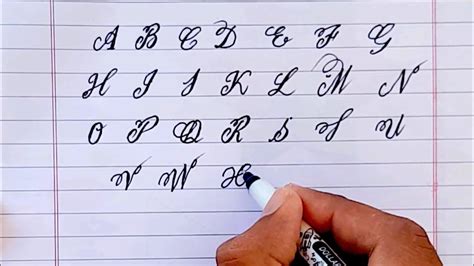 A B C D E F G
H I J K L M N
O P Q R S T U
V W X